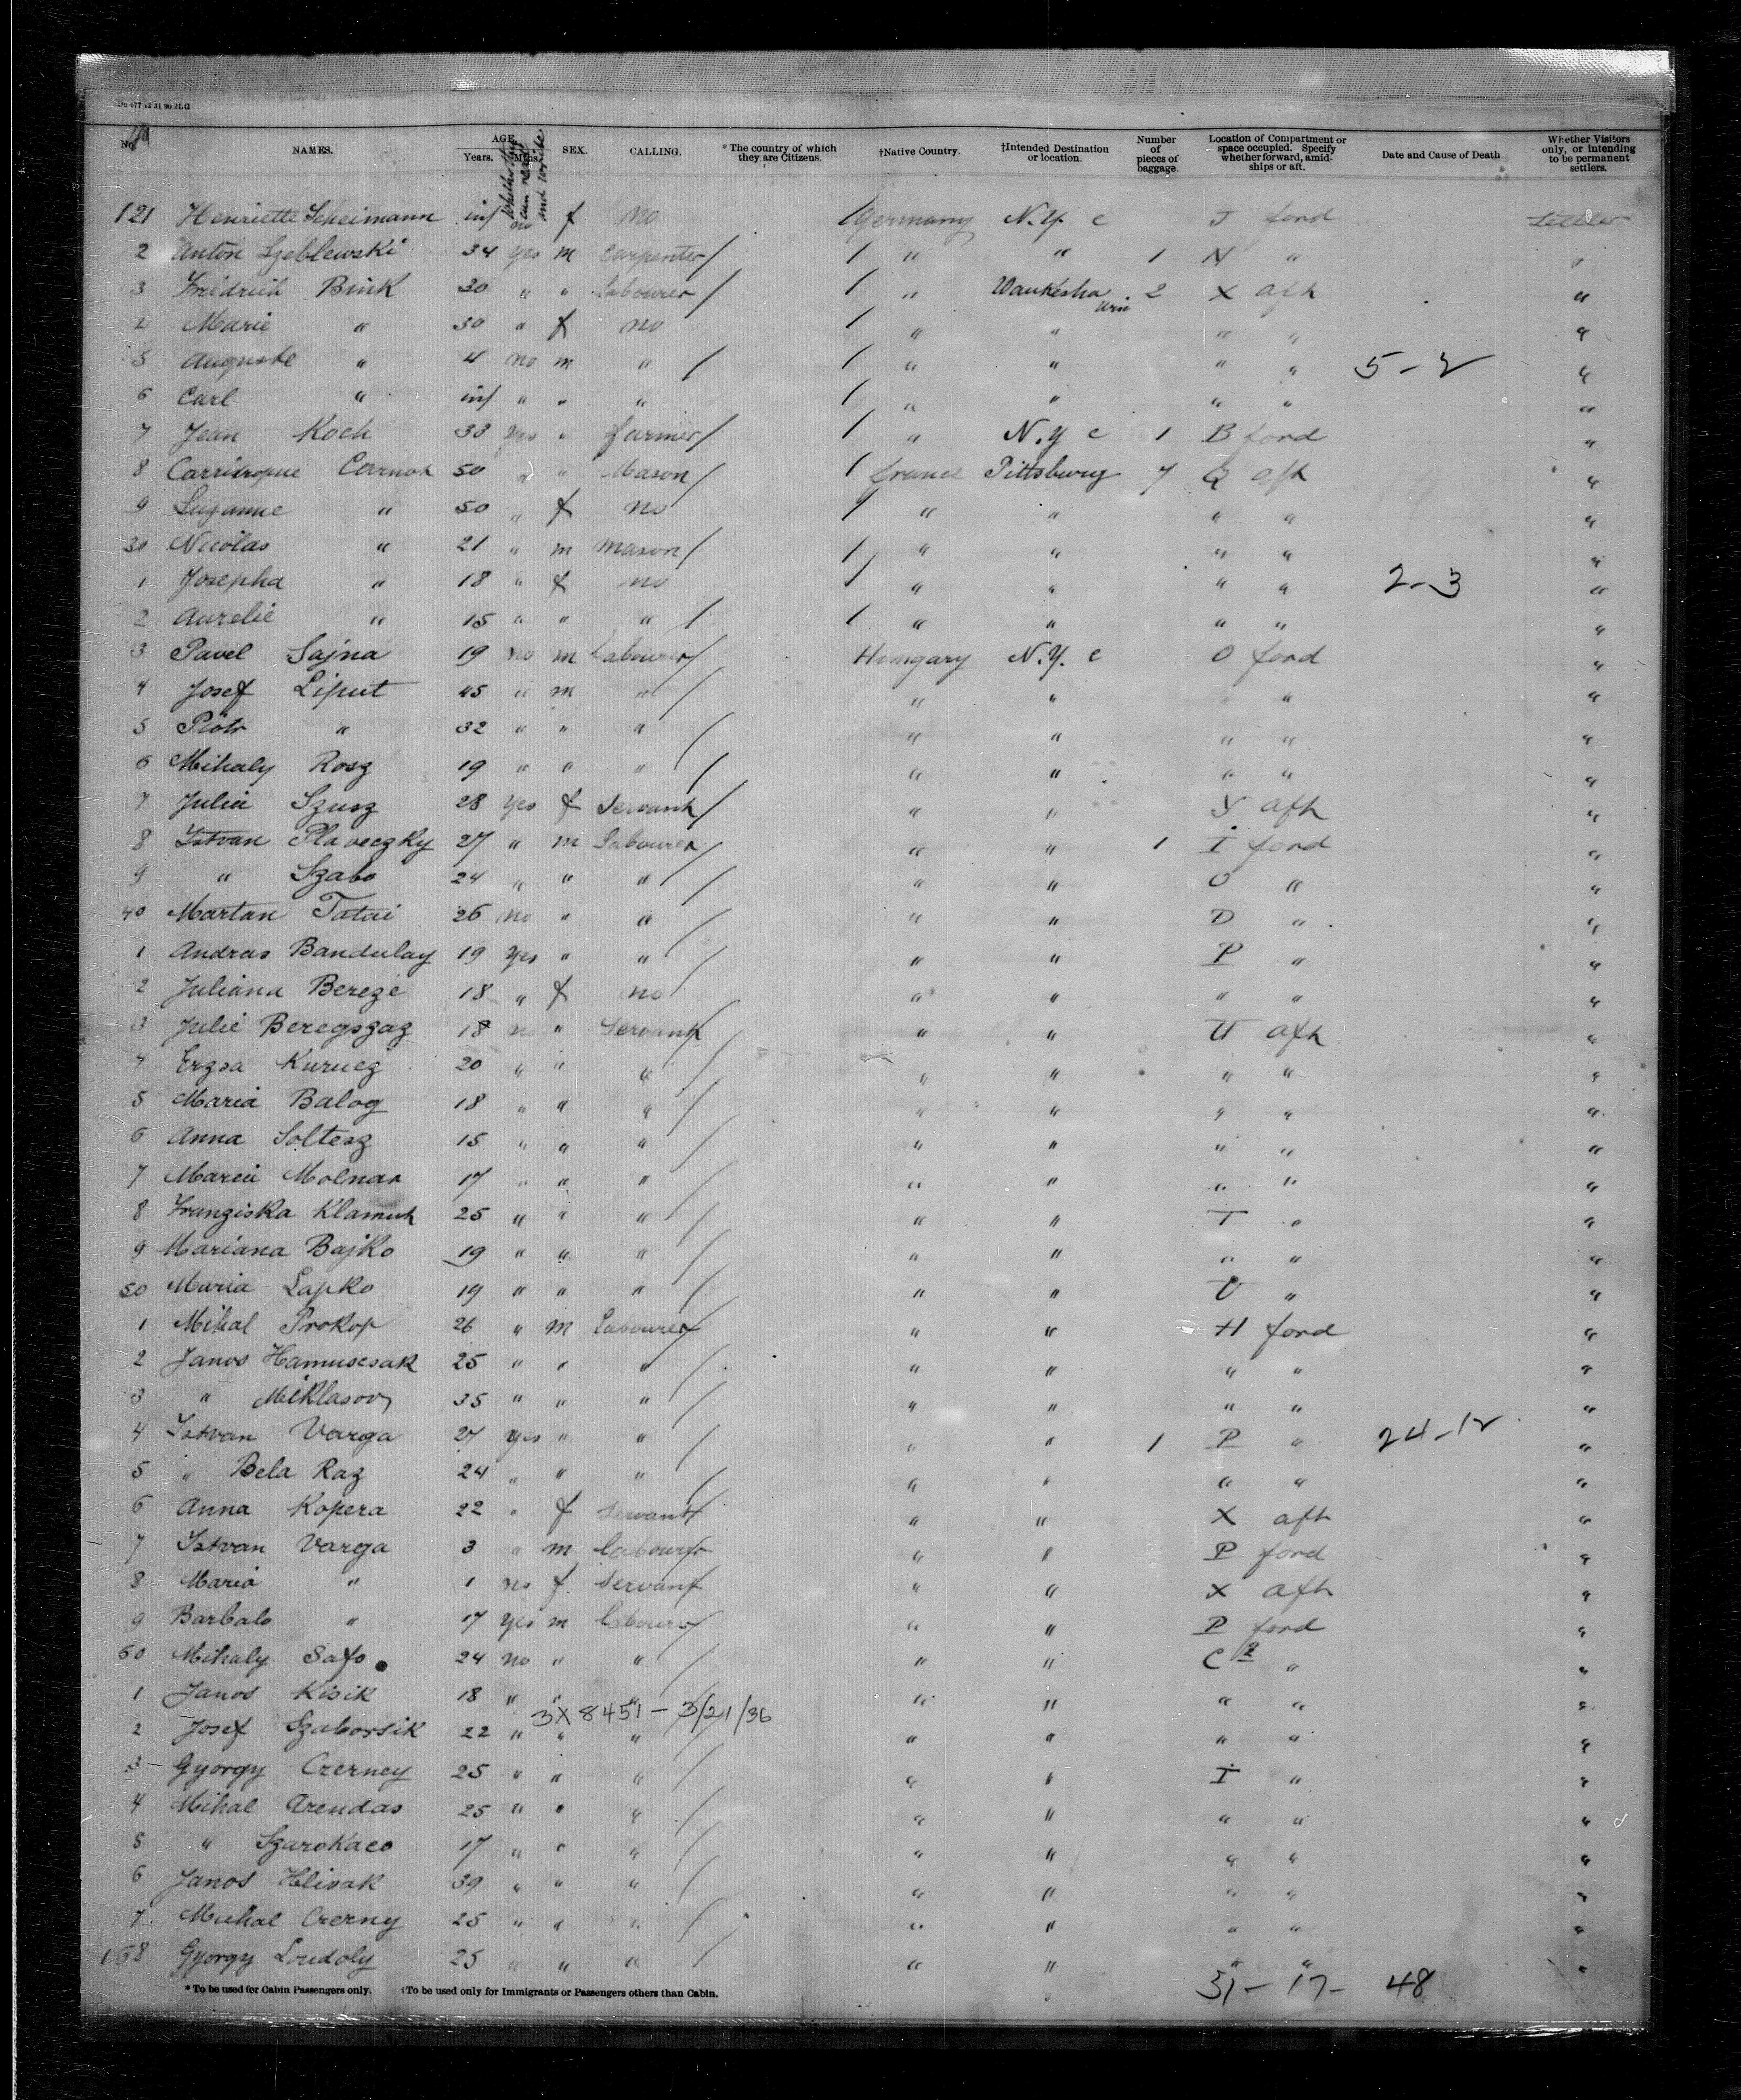 No.
NAMES.
AGE.
Years. Mths.
Whether they can read and write
SEX.
CALLING.
* The country of which they are Citizens.
†Native Country.
†Intended Destination or location.
Number of pieces of baggage.
Location of Compartment or space occupied. Specify whether forward, amidships or aft.
Date and Cause of Death
Whether Visitors only, or intending to be permanent settlers.
121 Henriette Scheimann inf no f no / Germany N.Y. c J ford Settler
2 Anton Szeblewski 34 yes m Carpenter / / " " 1 N " "
3 Friedrich Bink 30 " " Labourer / / " Waukesha Wis 2 X aft "
4 Marie " 30 " f no / " " " " "
5 Auguste " 4 no m " / / " " " " 5-2 "
6 Carl " inf " " " / " " " " "
7 Jean Koch 33 yes " farmer / / " N.Y c 1 B ford "
8 Cornut 50 " " Mason / / France Pittsburg 7 Q aft "
9 Suzanne " 50 " f no / " " " " "
30 Nicolas " 21 " m mason / / " " " " "
1 Josepha " 18 " f no / " " " " 2-3 "
2 Aurelie " 15 " " " / / " " " " "
3 Pavel Sajna 19 no m Labourer / Hungary N.Y. c O ford "
4 Josef Liput 45 " m " / " " " "
5 Piotr " 32 " " " / " " " " "
6 Mihaly Rosz 19 " " " / " " " " "
7 Julia Szusz 28 yes f Servant / " " Y aft "
8 Istvan Plaveczky 27 " m Labourer / " " 1 I ford "
9 " Szabo 24 " " " / " " O " "
40 Martan Tatai 26 no " " / " " D " "
1 Andras Bandulay 19 yes " " / " " P " "
2 Juliana Bereze 18 " f no / " " " " "
3 Julie Beregszaz 18 no " Servant / " " U aft "
4 Erzsa Kurucz 20 " " " / " " " " "
5 Maria Balog 18 " " " / " " " " "
6 Anna Soltesz 15 " " " / " " " " "
7 Maria Molnar 17 " " " / " " " " "
8 Franziska Klamut 25 " " " / " " T " "
9 Mariana Bajko 19 " " " / " " " " "
50 Maria Lapko 19 " " " / " " U " "
1 Mihal Prokop 26 " m Labourer / " " H ford "
2 Janos Hamuscsak 25 " " " / " " " " "
3 " Miklasov 35 " " " / " " " " "
4 Istvan Varga 27 yes " " / " " 1 P " 24-12 "
5 " Bela Raz 24 " " " / " " " " "
6 Anna Kopera 22 " f Servant / " " X aft "
7 Istvan Varga 3 " m Labourer " " P ford "
8 Maria " 1 no f Servant " " X aft "
9 Barbalo " 17 yes m Labourer / " " P ford "
60 Mihaly Safo 24 no " " / " " C 2 " "
1 Janos Kisik 18 " " " " " " " "
3X8451 - 3/21/36
2 Josef Szaborsik 22 " " " / " " " " "
3 Gyorgy Czerney 25 " " " / " " I " "
4 Mihal Arendas 25 " " " / " " " " "
5 " Szarokaco 17 " " " / " " " " "
6 Janos Hlivak 39 " " " / " " " " "
7 Michal Czerny 25 " " " / " " " " "
168 Gyorgy Loudoly 25 " " " / " " " " "
31-17- 48
* To be used for Cabin Passengers only. †To be used only for Immigrants or Passengers others than Cabin.